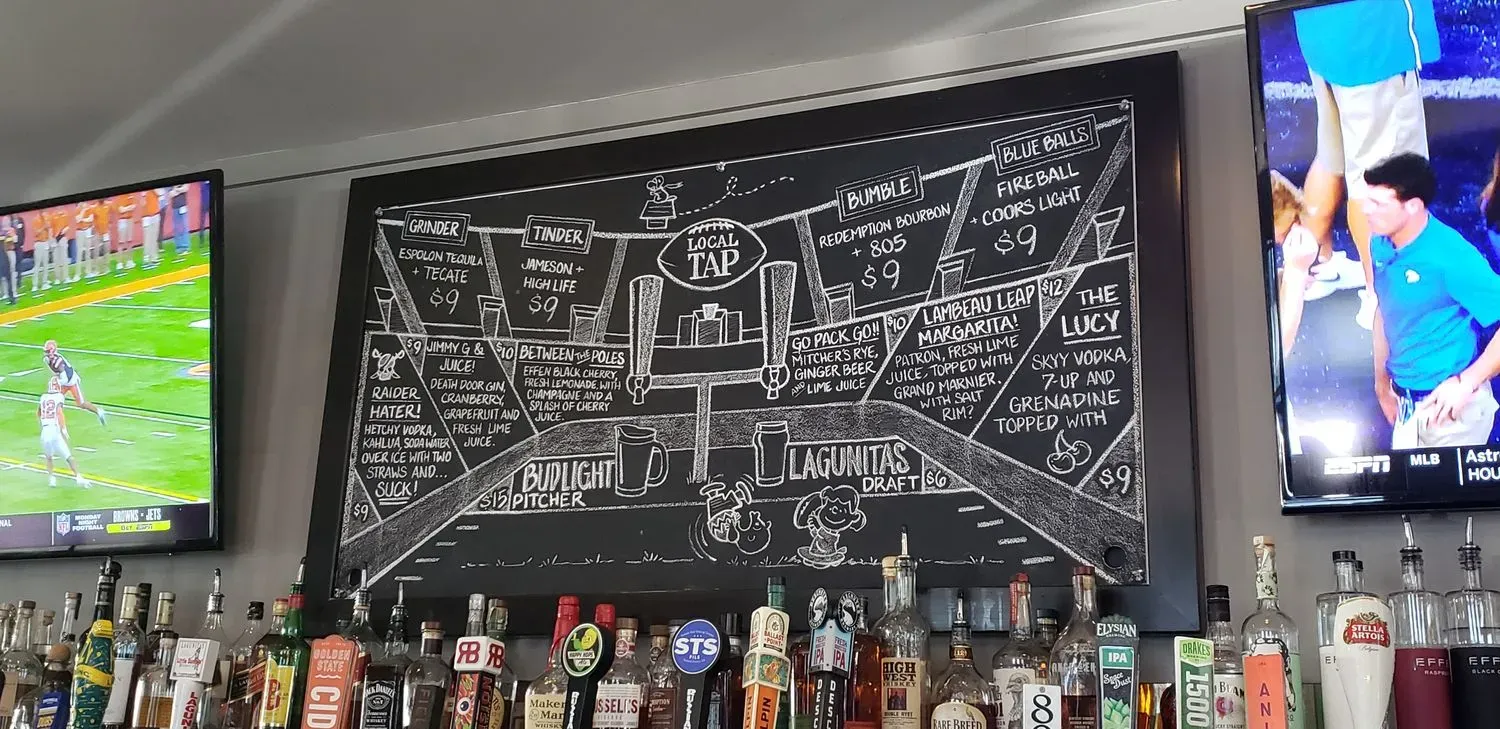 GRINDER
ESPOLON TEQUILA
+ TECATE
$9
TINDER
JAMESON +
HIGH LIFE
$9
LOCAL
TAP
BUMBLE
REDEMPTION BOURBON
+ 805
$9
BLUE BALLS
FIREBALL
+ COORS LIGHT
$9
$9
RAIDER
HATER!
HETCHY VODKA,
KAHLUA, SODA WATER
OVER ICE WITH TWO
STRAWS AND...
SUCK!
$9
JIMMY G &
JUICE!
$10
DEATH DOOR GIN,
CRANBERRY,
GRAPEFRUIT AND
FRESH LIME
JUICE.
BETWEEN THE POLES
EFFEN BLACK CHERRY,
FRESH LEMONADE, WITH
CHAMPAGNE AND A
SPLASH OF CHERRY
JUICE.
GO PACK GO!!
$10
MITCHER'S RYE,
GINGER BEER
AND LIME JUICE
LAMBEAU LEAP
MARGARITA!
$12
PATRON, FRESH LIME
JUICE, TOPPED WITH
GRAND MARNIER.
WITH SALT
RIM?
THE
LUCY
SKYY VODKA,
7-UP AND
GRENADINE
TOPPED WITH
$9
BUDLIGHT
$15 PITCHER
LAGUNITAS
DRAFT $6
NFL
MONDAY
NIGHT
FOOTBALL
BROWNS
JETS
ESPN
ESPN
MLB
Astr
HOU
GOLDEN
STATE
CID
JACK DANIEL
RB
Maker
Mar
STS
PILS
BALLAST
FRESH
IPA
DESC
HIGH
WEST
RARE BREED
ELYSIAN
IPA
Space
Dust
DRAKE'S
1500
STELLA
ARTOIS
EFF